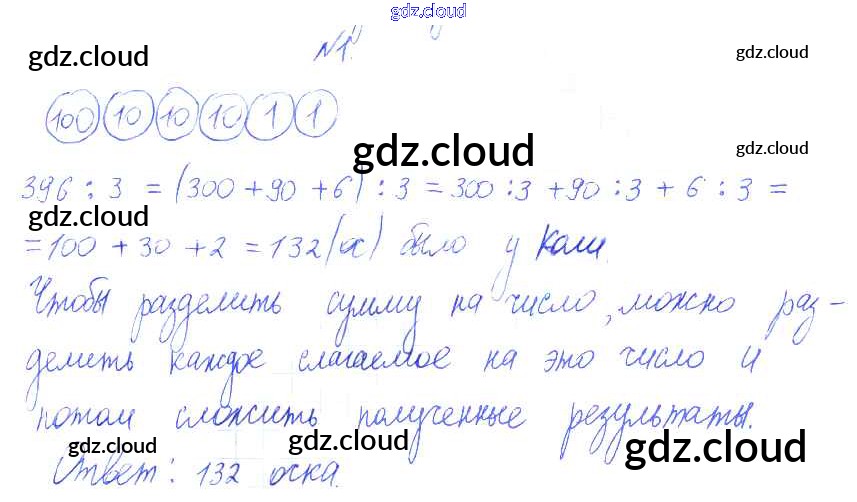 gdz.cloud
N1.
gdz.cloud gdz.cloud
100 10 10 10 1 1
gdz.cloud gdz.cloud
396 : 3 = (300 + 90 + 6) : 3 = 300 : 3 + 90 : 3 + 6 : 3 =
gdz.cloud
= 100 + 30 + 2 = 132 (ос) было у Коли.
Чтобы разделить сумму на число, можно раз-
делить каждое слагаемое на это число и
потом сложить полученные результаты.
gdz.cloud gdz.cloud gdz.cloud
Ответ: 132 очка.